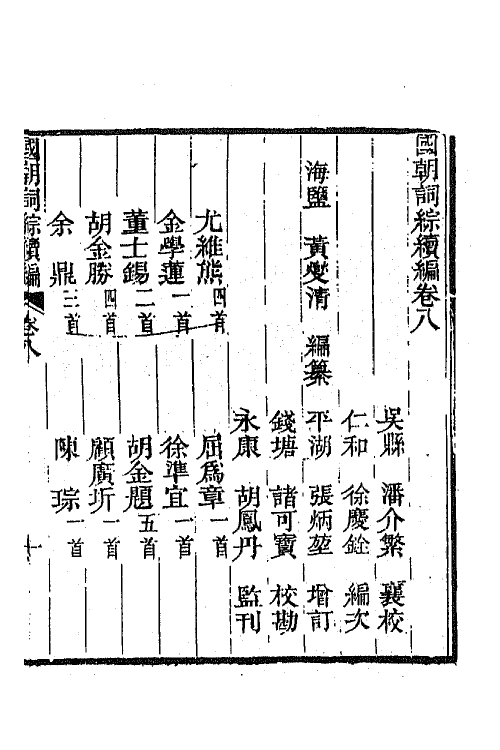 國朝詞綜續編卷八
吳縣 潘介繁 襄校
仁和 徐慶銓 編次
海鹽 黃燮清 編纂 平湖 張炳堃 增訂
錢塘 諸可寶 校勘
永康 胡鳳丹 監刊
尤維熊四首 屈爲章一首
金學蓮一首 徐準宜一首
董士錫二首 胡金題五首
胡金勝四首 顧廣圻一首
余鼎三首 陳琮一首
國朝詞綜續編 卷八 十